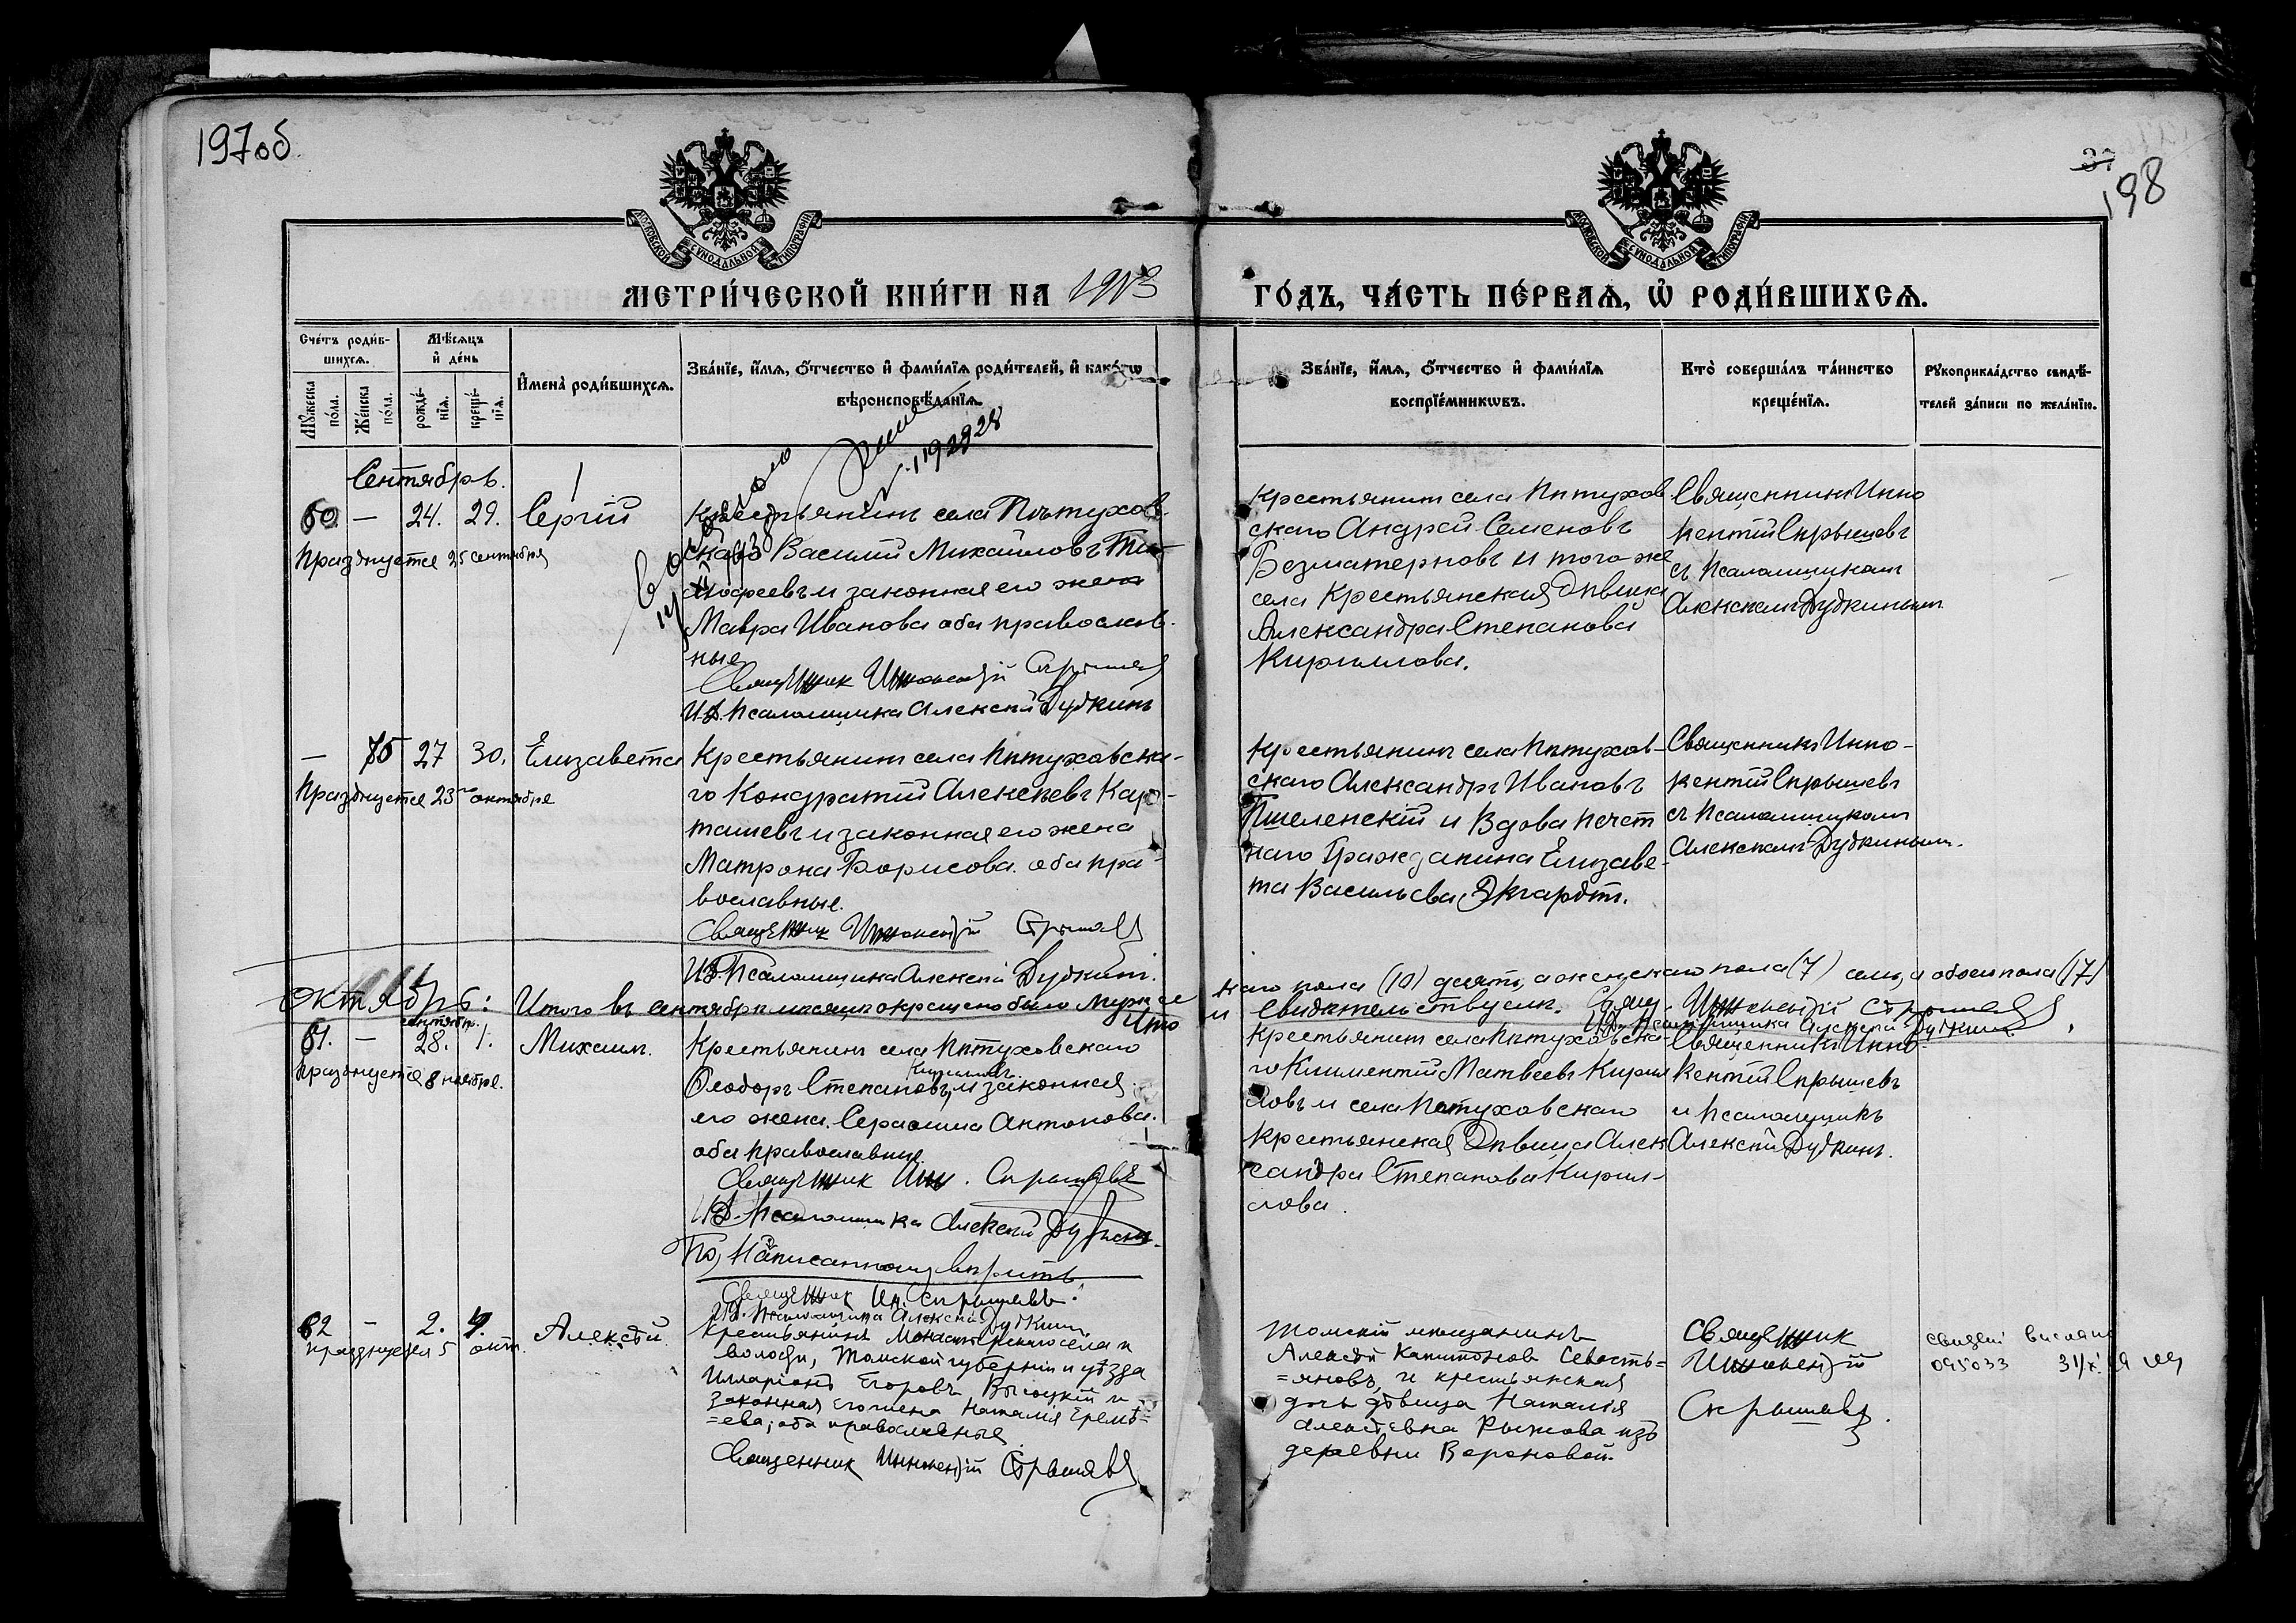 197об.
37
198
МОСКОВСКОЙ СѴНОДАЛЬНОЙ ТИПОГРАФІИ
МОСКОВСКОЙ СѴНОДАЛЬНОЙ ТИПОГРАФІИ
МЕТРИ́ЧЕСКОЙ КНИ́ГИ НА 1913
ГО́ДЪ, ЧА́СТЬ ПЕ́РВАѦ, Ѽ РОДИ́ВШИХСѦ.
Сче́тъ роди́в-
шихсѧ.
Мѣ́сѧцъ
и҆ де́нь
Мꙋ́жеска
по́ла.
Же́нска
по́ла.
рожде́-
нїѧ.
креще́-
нїѧ.
И҆мена̀ роди́вшихсѧ.
Зва́нїе, и҆́мѧ, ѻ҆́тчество и҆ фами́лїѧ роди́телей, и҆ како́гѡ
вѣроисповѣ́данїѧ.
Зва́нїе, и҆́мѧ, ѻ҆́тчество и҆ фами́лїѧ
воспрїе́мникѡвъ.
Кто̀ соверша́лъ та́инство
креще́нїѧ.
Рꙋкоприкла́дство свидѣ́-
телей за́писи по жела́нїю.
Сентябрь.
60 — 24. 29. Сергій
Празднуется 25 сентября
Крестьянинъ села Пѣтухов-
скаго Василій Михайловъ Ти-
мофеевъ и законная его жена
Мавра Иванова оба православ-
ные
Священник Иннокентій Скрышев
И.Д. Псаломщика Алексѣй Дудкинъ
Крестьянинъ села Пѣтухов
скаго Андрей Семеновъ
Безматерновъ и того же
села Крестьянская дѣвица
Александра Степанова
Кириллова.
Священникъ Инно
кентій Скрышевъ
съ Псаломщикомъ
Алексѣемъ Дудкинымъ
— 75 27 30. Елизавета
Празднуется 23го октября
Крестьянинъ села Пѣтуховска-
го Кондратій Алексѣевъ Кар-
ташевъ и законная его жена
Матрона Борисова. оба пра-
вославные.
Священник Иннокентій Скрышев
И.Д. Псаломщика Алексѣй Дудкинъ.
Крестьянинъ села Пѣтухов-
скаго Александръ Ивановъ
Пшеленскій и Вдова почет
наго Гражданина Елизаве-
та Васильева Экгардтъ.
Священникъ Инно-
кентій Скрышевъ
съ Псаломщикомъ
Алексѣемъ Дудкинымъ.
Октябрь:
Итого въ сентябрѣ мѣсяцѣ окрещено было мужес
каго пола (10) десять, а женскаго пола (7) семь, а обоего пола (17)
что
и свидѣтельствуемъ. Свящ. Иннокентій Скрышев
И.Д. Псаломщика Алексѣй Дудкинъ.
61. — сентябр. 28. 1. Михаилъ.
Празднуется 8 ноября.
Крестьянинъ села Пѣтуховскаго
Кирилловъ
Ѳеодоръ Степановъ, и законная
его жена Серафима Антонова.
оба православные.
Священник Инн. Скрышевъ
И.Д. Псаломщика Алексѣй Дудкинъ.
По написанному вѣрить.
Священник Ин. Скрышевъ.
И.Д. Псаломщика Алексѣй Дудкинъ
Крестьянинъ села Пѣтуховска-
го Климентій Матвеевъ Кирил
ловъ и села Пѣтуховскаго
Крестьянская Дѣвица Алек
сандра Степанова Кирил-
лова.
Священникъ Инно-
кентій Скрышевъ
и Псаломщикъ
Алексѣй Дудкинъ.
62 — 2. 4. Алексѣй.
празднуется 5 окт.
Крестьянинъ села и
волости, Томской губерніи и уѣзда
Илларіонъ Егоровъ Высоцкій и
законная его жена Наталія Еремѣ=
=ева; оба православные
Священник Иннокентій Скрышевъ
Томскій мѣщанинъ
Алексѣй Капитоновъ Севасть=
=яновъ, и крестьянская
дочь дѣвица Наталія
Алексѣевна Рыжова изъ
деревни Вороновой.
Священник
Иннокентій
Скрышевъ.
095033